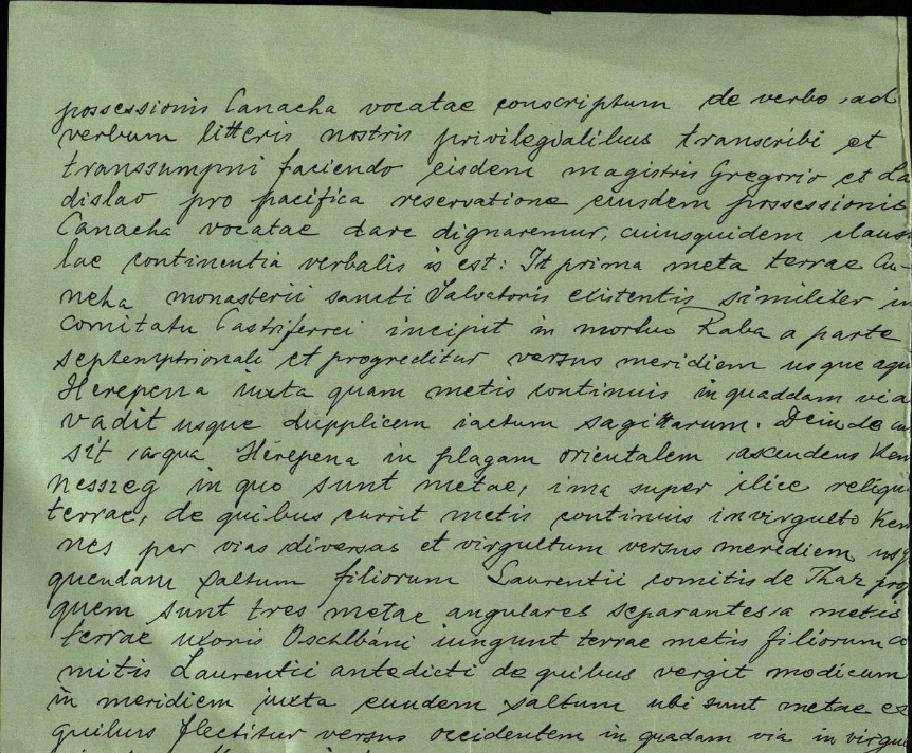 possessionis Canacha vocatae conscriptum de verbo ad
verbum litteris nostris privilegialibus transcribi et
transsumpni faciendo eisdem magistris Gregorio et La
dislao pro pacifica reservatione eiusdem possessionis
Canacha vocatae dare dignaremur, cuiusquidem claus
lae continentia verbalis is est: It prima meta terrae Ca-
necha monasterii sancti Salvatoris existentis similiter in
comitatu Castriferrei incipit in mortuo Raba a parte
septemptrionali et progreditur versus meridiem usque aqu
Herepena iuxta quam metis continuis in quaddam via
vadit usque dupplicem iactum sagittarum. Deinde
sit aqua Herepena in plagam orientalem ascendens Ken
nesszeg in quo sunt metae, ima super ilice reliqu
terrae, de quibus currit metis continuis in virgulto Ken
nes per vias diversas et virgultum versus meridiem usq
quendam saltum filiorum Laurentii comitis de Thar prop
quem sunt tres metae angulares separantes a metis
terrae uxoris Oschlbáni iungunt terrae metis filiorum co
mitis Laurentii antedicti de quibus vergit modicum
in meridiem iuxta eundem saltum ubi sunt metae ex
quibus flectitur versus occidentem in quadam via in virgu